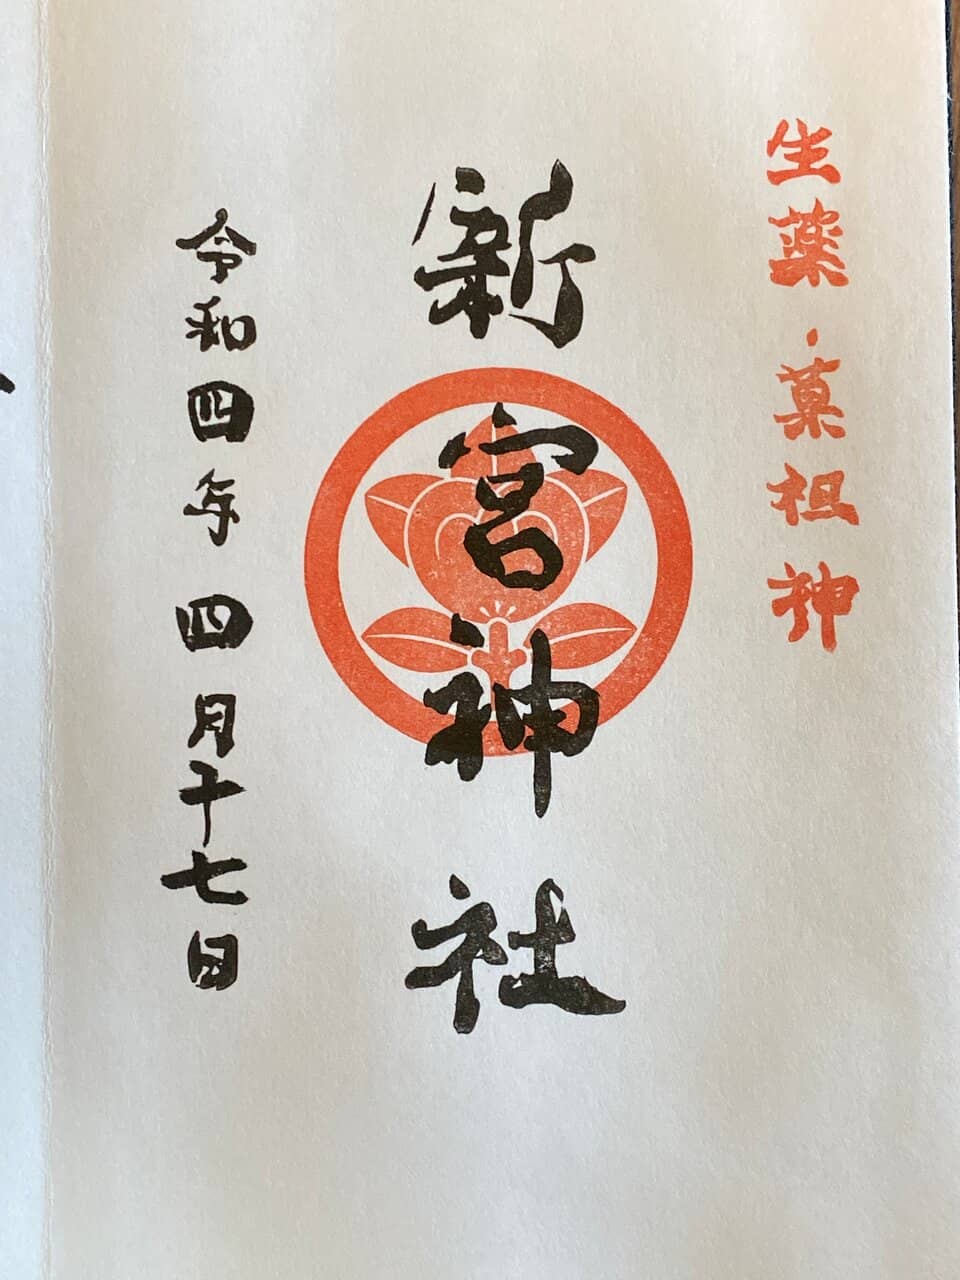 生薬・菓祖神
新宮神社
令和四年四月十七日